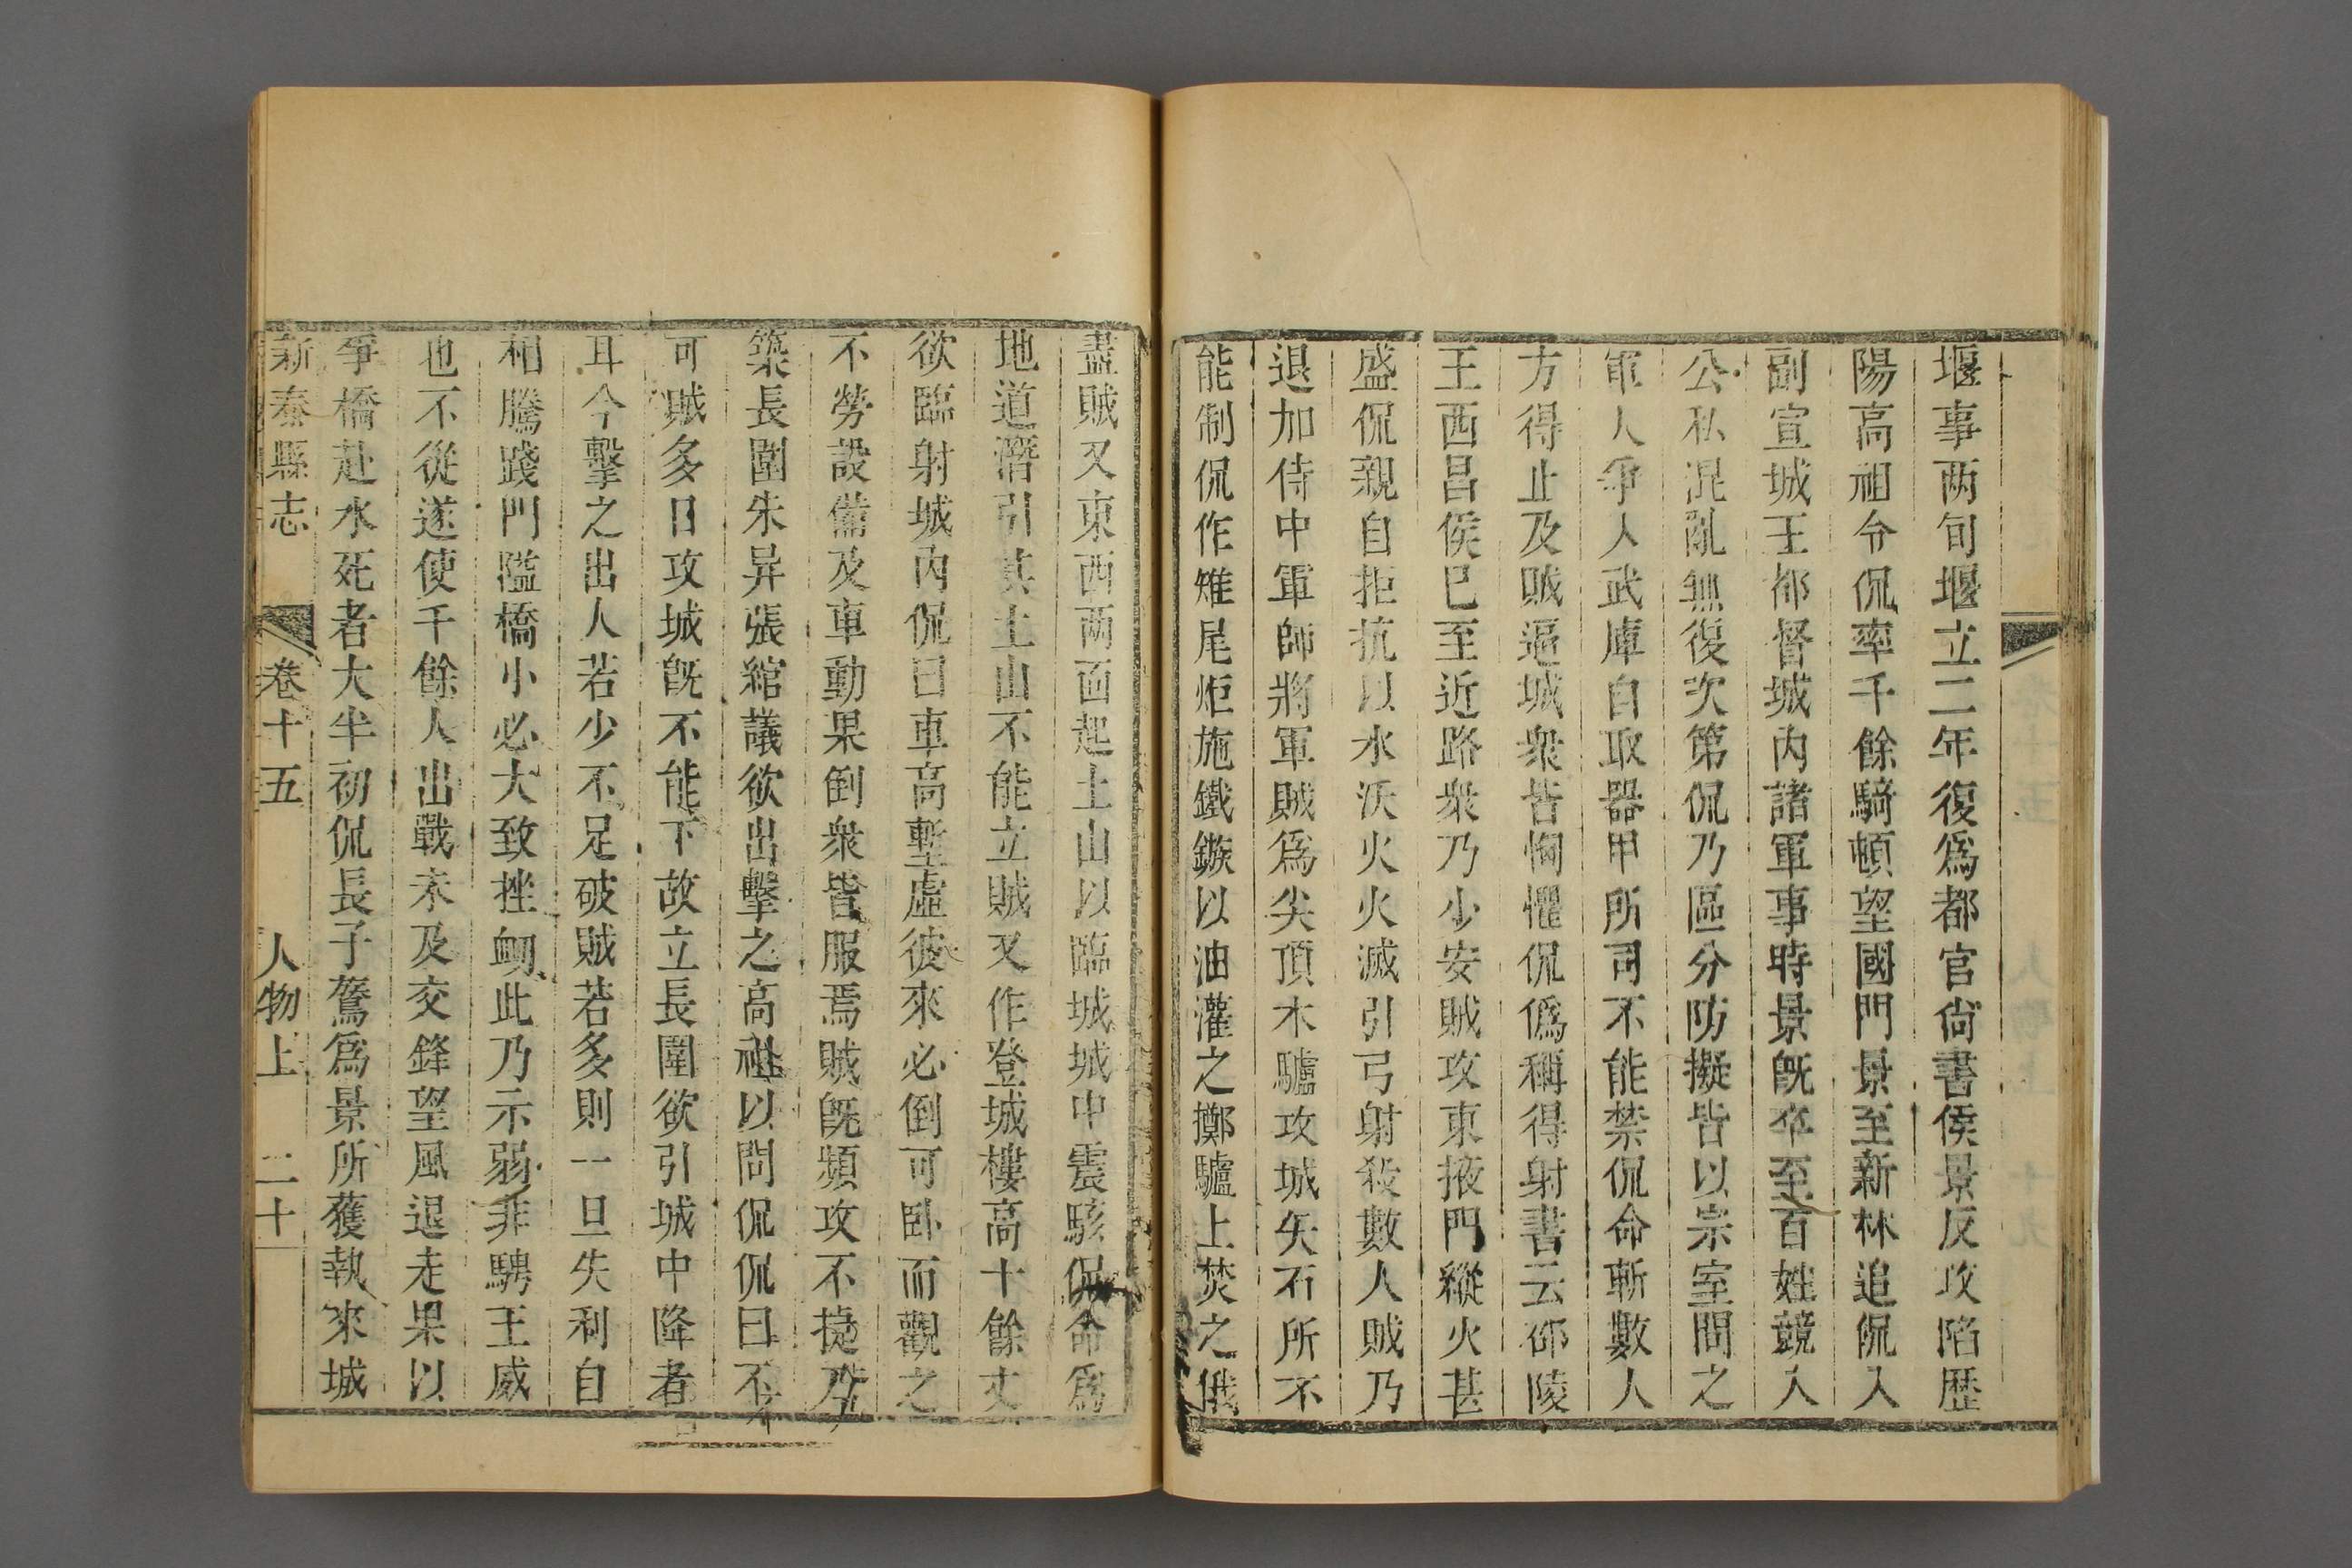 堰事两旬堰立二年復爲都官尙書侯景反攻陷歴
陽高祖令侃率千餘騎頓望國門景至新林追侃入
副宣城王都督城內諸軍事時景旣卒至百姓競入
公私混亂無復次第侃乃區分防擬皆以宗室間之
軍人爭入武庫自取器甲所司不能禁侃命斬數人
方得止及賊逼城衆皆恟懼侃僞稱得射書云邵陵
王西昌侯已至近路衆乃少安賊攻東掖門縱火甚
盛侃親自拒抗以水沃火火滅引弓射殺數人賊乃
退加侍中軍師將軍賊爲尖頂木驢攻城矢石所不
能制侃作雉尾炬施鐵鏃以油灌之擲驢上焚之俄
盡賊又東西两面起土山以臨城城中震駭侃命爲
地道潛引其土山不能立賊又作登城樓高十餘丈
欲臨射城內侃曰車高塹虛彼來必倒可卧而觀之
不勞設備及車動果倒衆皆服焉賊旣頻攻不捷乃
築長圍朱异張綰議欲出擊之高祖以問侃侃曰不
可賊多日攻城旣不能下故立長圍欲引城中降者
耳今擊之出人若少不足破賊若多則一旦失利自
相騰踐門隘橋小必大致挫衂此乃示弱非騁王威
也不從遂使千餘人出戰未及交鋒望風退走果以
爭橋赴水死者大半初侃長子鷟爲景所獲執來城
新泰縣志 卷十五 人物上 二十